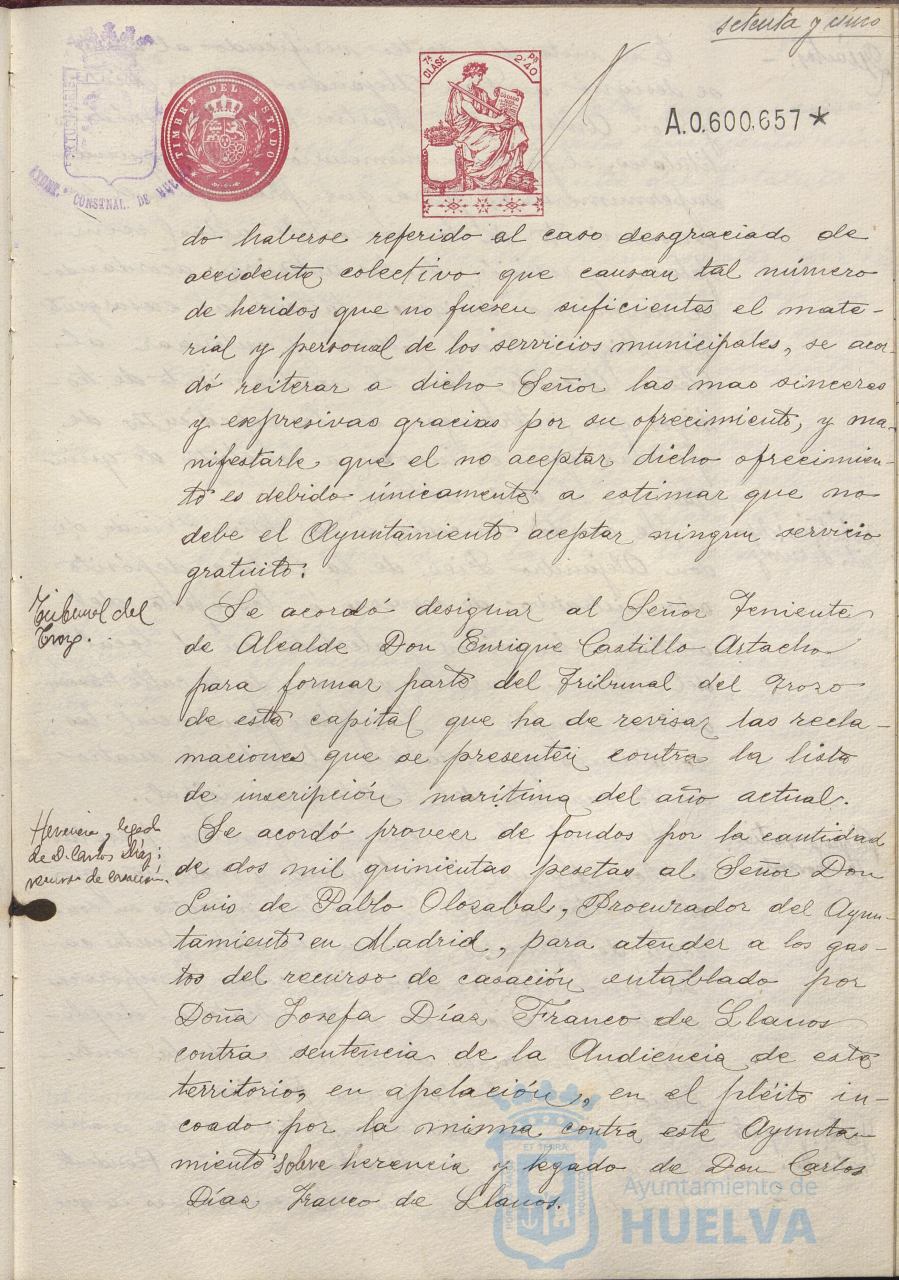 setenta y cinco
TIMBRE DEL ESTADO
7ª CLASE
Pts 2'40
A.0.600.657*
AYUN. CONSTNAL. DE HUELVA
do haberse referido al caso desgraciado de
accidente colectivo que causan tal número
de heridos que no fuesen suficientes el mate-
rial y personal de los servicios municipales, se acor-
dó reiterar a dicho Señor las mas sinceras
y expresivas gracias por su ofrecimiento, y ma-
nifestarle que el no aceptar dicho ofrecimien-
to es debido únicamente a estimar que no
debe el Ayuntamiento aceptar ningun servicio
gratuito.
Tribunal del
Trozo.
Se acordó designar al Señor Teniente
de Alcalde Don Enrique Castillo Artacho
para formar parte del Tribunal del Trozo
de esta capital que ha de revisar las recla-
maciones que se presenten contra la lista
de inscripción marítima del año actual.
Herencia y legado
de D. Carlos Díaz;
recurso de casación.
Se acordó proveer de fondos por la cantidad
de dos mil quinientas pesetas al Señor Don
Luis de Pablo Olozabal, Procurador del Ayun-
tamiento en Madrid, para atender a los gas-
tos del recurso de casación entablado por
Doña Josefa Díaz Franco de Llanos
contra sentencia de la Audiencia de este
territorio, en apelación, en el pléito in-
coado por la misma contra este Ayunta-
miento sobre herencia y legado de Don Carlos
Díaz Franco de Llanos.
Ayuntamiento de
HUELVA